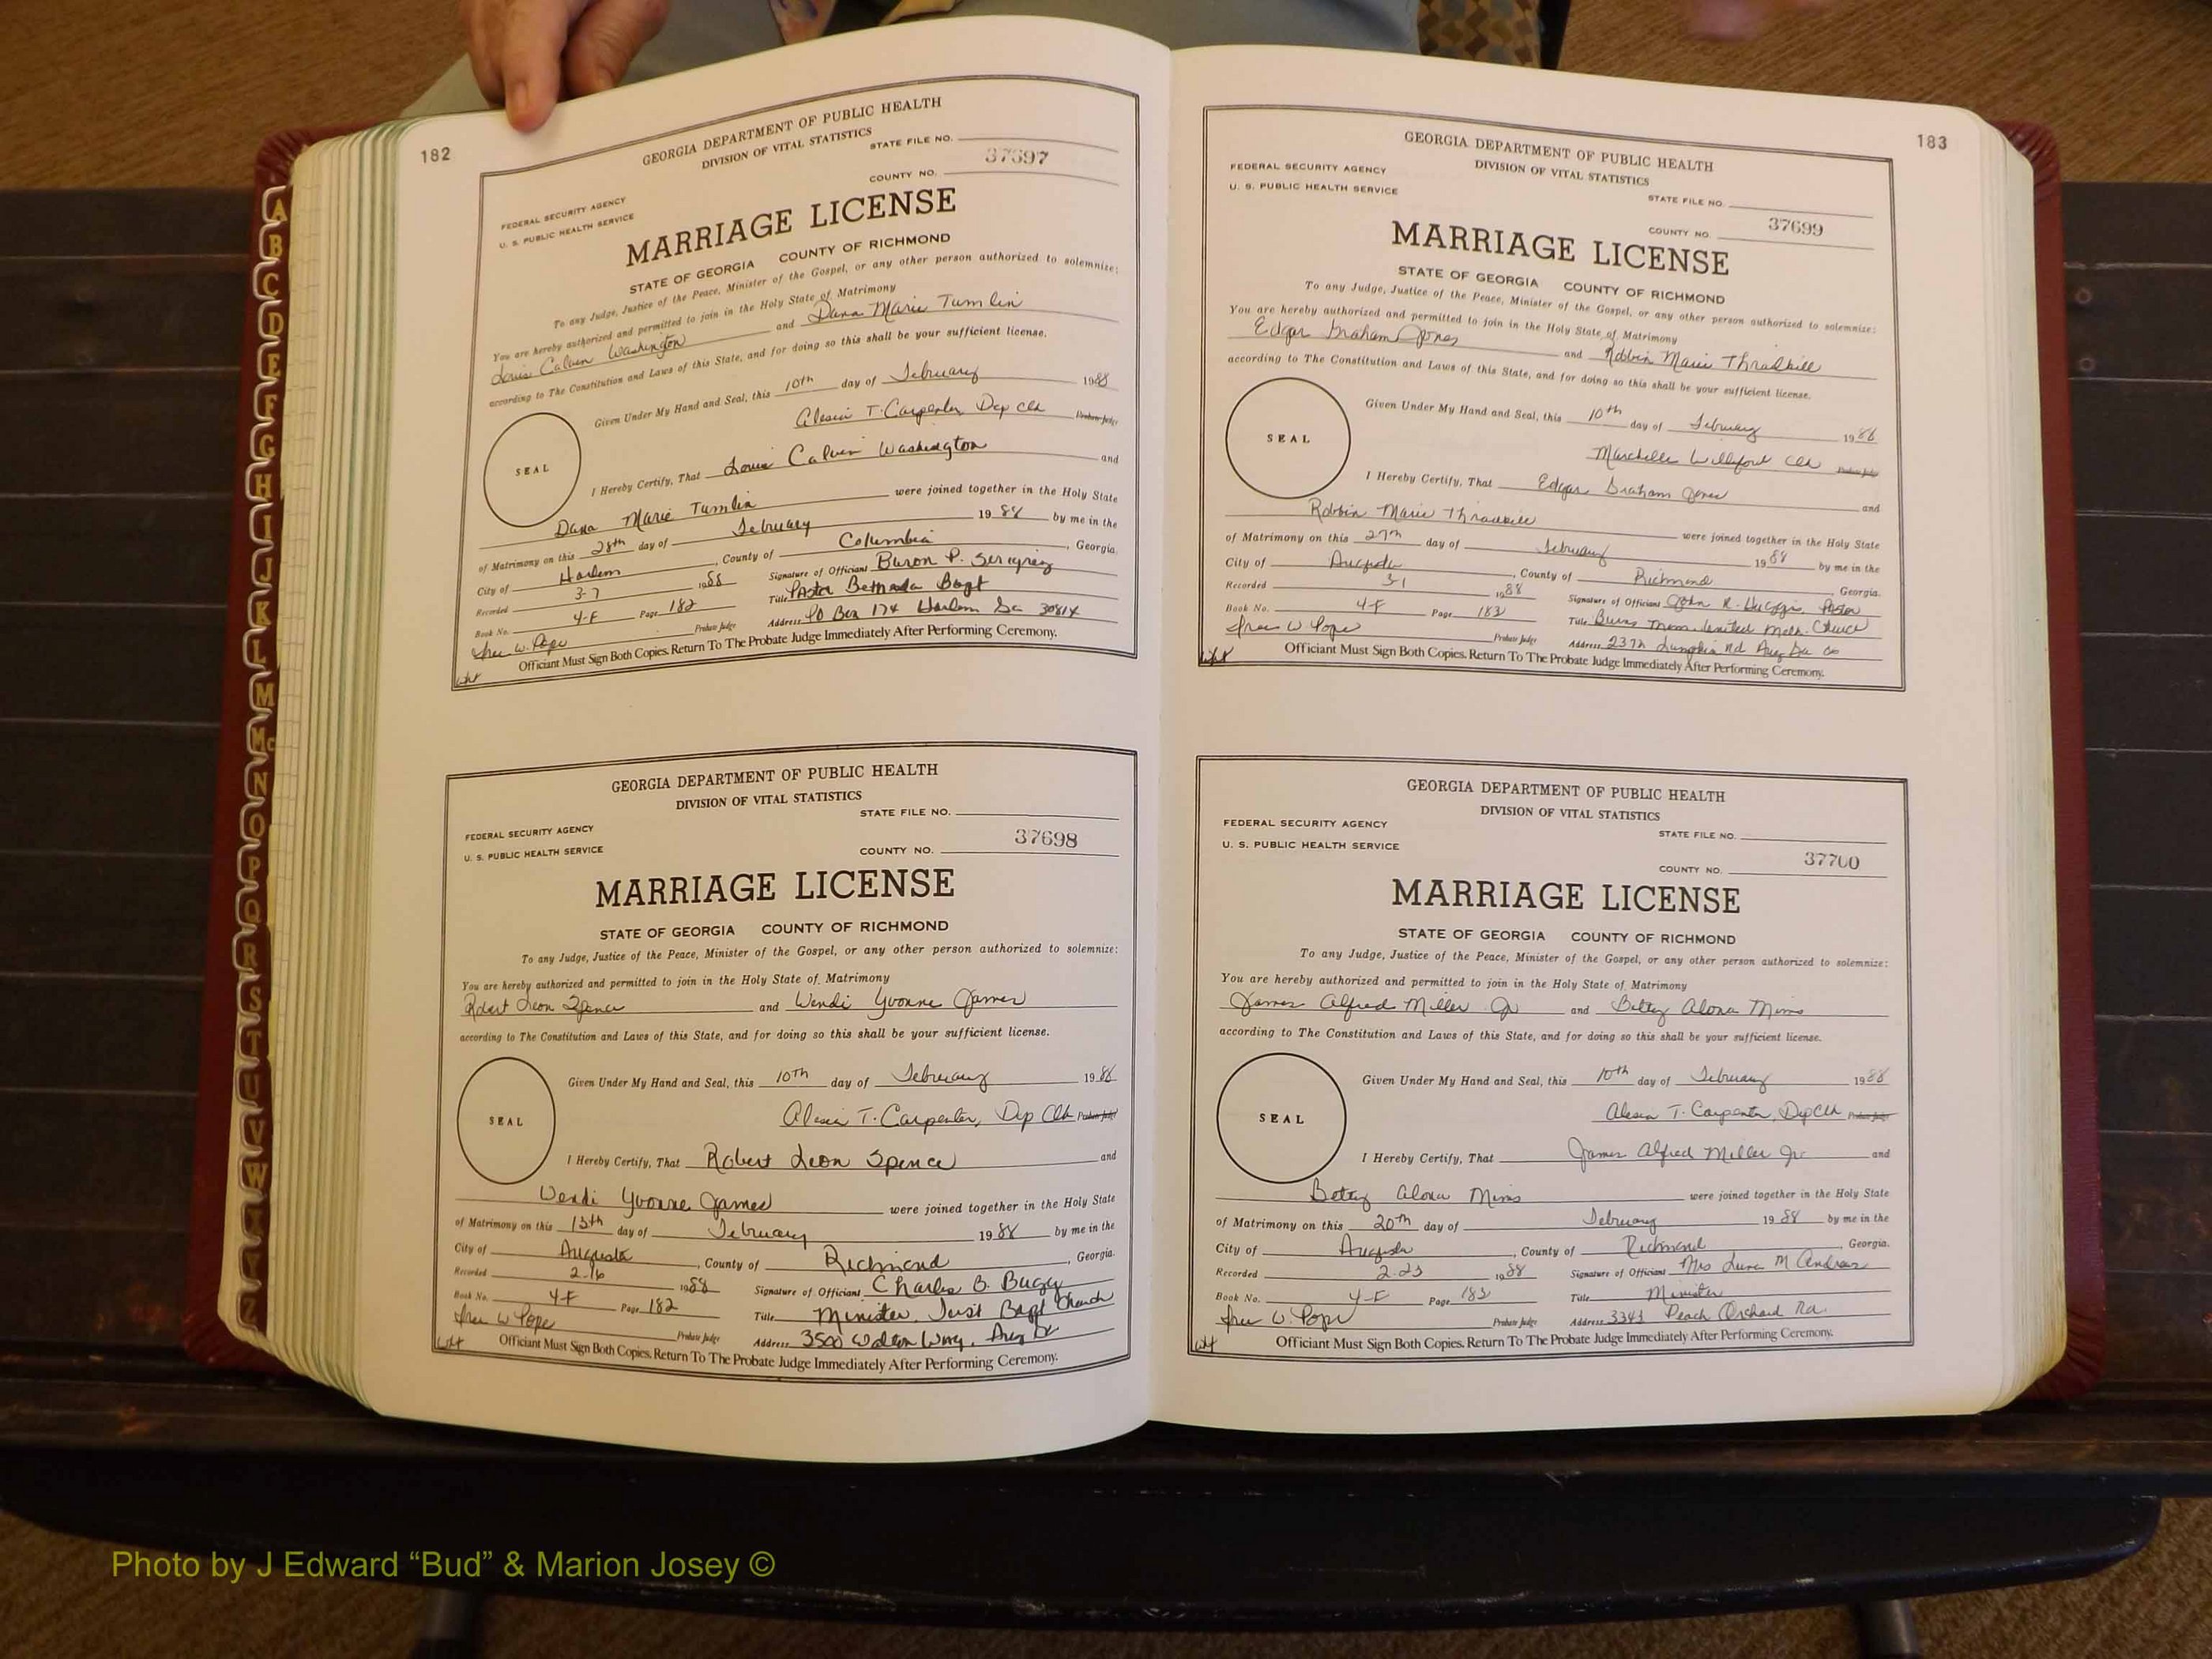 182
GEORGIA DEPARTMENT OF PUBLIC HEALTH
DIVISION OF VITAL STATISTICS
STATE FILE NO.
37697
FEDERAL SECURITY AGENCY
COUNTY NO.
U. S. PUBLIC HEALTH SERVICE
MARRIAGE LICENSE
STATE OF GEORGIA COUNTY OF RICHMOND
To any Judge, Justice of the Peace, Minister of the Gospel, or any other person authorized to solemnize:
You are hereby authorized and permitted to join in the Holy State of Matrimony
Louis Calvin Washington and Dana Marie Tumlin
according to The Constitution and Laws of this State, and for doing so this shall be your sufficient license.
Given Under My Hand and Seal, this 10th day of February 1988
Alesia T. Carpenter, Dep Clk Probate Judge
SEAL
I Hereby Certify, That Louis Calvin Washington and
Dana Marie Tumlin were joined together in the Holy State
of Matrimony on this 28th day of February 1988 by me in the
City of Harlem, County of Columbia, Georgia.
Recorded 3-7 1988 Signature of Officiant Buron P.
Book No. 4-F Page 182 Title Pastor Bethesda Bapt
W. Pope Probate Judge Address PO Box 174 Harlem Ga 30814
Officiant Must Sign Both Copies. Return To The Probate Judge Immediately After Performing Ceremony.
GEORGIA DEPARTMENT OF PUBLIC HEALTH
DIVISION OF VITAL STATISTICS
STATE FILE NO.
FEDERAL SECURITY AGENCY
37698
U. S. PUBLIC HEALTH SERVICE
COUNTY NO.
MARRIAGE LICENSE
STATE OF GEORGIA COUNTY OF RICHMOND
To any Judge, Justice of the Peace, Minister of the Gospel, or any other person authorized to solemnize:
You are hereby authorized and permitted to join in the Holy State of Matrimony
Robert Leon Spence and Wendi Yvonne James
according to The Constitution and Laws of this State, and for doing so this shall be your sufficient license.
Given Under My Hand and Seal, this 10th day of February 1988
Alesia T. Carpenter, Dep Clk Probate Judge
SEAL
I Hereby Certify, That Robert Leon Spence and
Wendi Yvonne James were joined together in the Holy State
of Matrimony on this 13th day of February 1988 by me in the
City of Augusta, County of Richmond, Georgia.
Recorded 2-16 1988 Signature of Officiant Charles B. Bugg
Book No. 4-F Page 182 Title Minister, First Bapt Church
W Pope Probate Judge Address 3500 Walton Way, Aug Ga
Officiant Must Sign Both Copies. Return To The Probate Judge Immediately After Performing Ceremony.
183
GEORGIA DEPARTMENT OF PUBLIC HEALTH
DIVISION OF VITAL STATISTICS
FEDERAL SECURITY AGENCY
U. S. PUBLIC HEALTH SERVICE
STATE FILE NO.
37699
COUNTY NO.
MARRIAGE LICENSE
STATE OF GEORGIA COUNTY OF RICHMOND
To any Judge, Justice of the Peace, Minister of the Gospel, or any other person authorized to solemnize:
You are hereby authorized and permitted to join in the Holy State of Matrimony
Edgar Graham Jones and Robbin Marie Thrailkill
according to The Constitution and Laws of this State, and for doing so this shall be your sufficient license.
Given Under My Hand and Seal, this 10th day of February 1988
Marchelle Williford Clk Probate Judge
SEAL
I Hereby Certify, That Edgar Graham Jones and
Robbin Marie Thrailkill were joined together in the Holy State
of Matrimony on this 27th day of February 1988 by me in the
City of Augusta, County of Richmond Georgia.
Recorded 3-1 1988 Signature of Officiant John R. Huggins, Pastor
Book No. 4-F Page 183 Title Burns Mem. United Meth. Church
W Pope Probate Judge Address Lumpkin Rd Aug Ga
Officiant Must Sign Both Copies. Return To The Probate Judge Immediately After Performing Ceremony.
GEORGIA DEPARTMENT OF PUBLIC HEALTH
DIVISION OF VITAL STATISTICS
FEDERAL SECURITY AGENCY
STATE FILE NO.
U. S. PUBLIC HEALTH SERVICE
37700
COUNTY NO.
MARRIAGE LICENSE
STATE OF GEORGIA COUNTY OF RICHMOND
To any Judge, Justice of the Peace, Minister of the Gospel, or any other person authorized to solemnize:
You are hereby authorized and permitted to join in the Holy State of Matrimony
James Alfred Miller Jr and Betty Alona Mims
according to The Constitution and Laws of this State, and for doing so this shall be your sufficient license.
Given Under My Hand and Seal, this 10th day of February 1988
Alesia T. Carpenter, Dep Clk Probate Judge
SEAL
I Hereby Certify, That James Alfred Miller Jr. and
Betty Alona Mims were joined together in the Holy State
of Matrimony on this 20th day of February 1988 by me in the
City of Augusta, County of Richmond, Georgia.
Recorded 2-23 1988 Signature of Officiant Mrs M Andrews
Book No. 4-F Page 183 Title Minister
W. Pope Probate Judge Address 3343 Peach Orchard Rd.
Officiant Must Sign Both Copies. Return To The Probate Judge Immediately After Performing Ceremony.
A
B
C
D
E
F
G
H
I
J
K
L
M
Mc
N
O
P
Q
R
S
T
U
V
W
X
Y
Z
Photo by J Edward “Bud” & Marion Josey ©